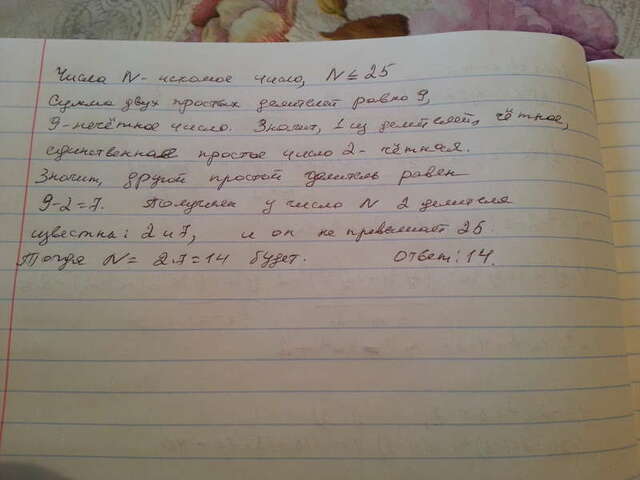 Числа N - искомое число, N ≤ 25
Сумма двух простых делителей равно 9,
9-нечётное число. Значит, 1 из делителей, чётное,
единственное простое число 2- чётная.
Значит, другой простой делитель равен
9-2=7. Получаем у число N 2 делителя
известны: 2 и 7, и он не превышает 25.
Тогда N = 2.7=14 будет. Ответ: 14.